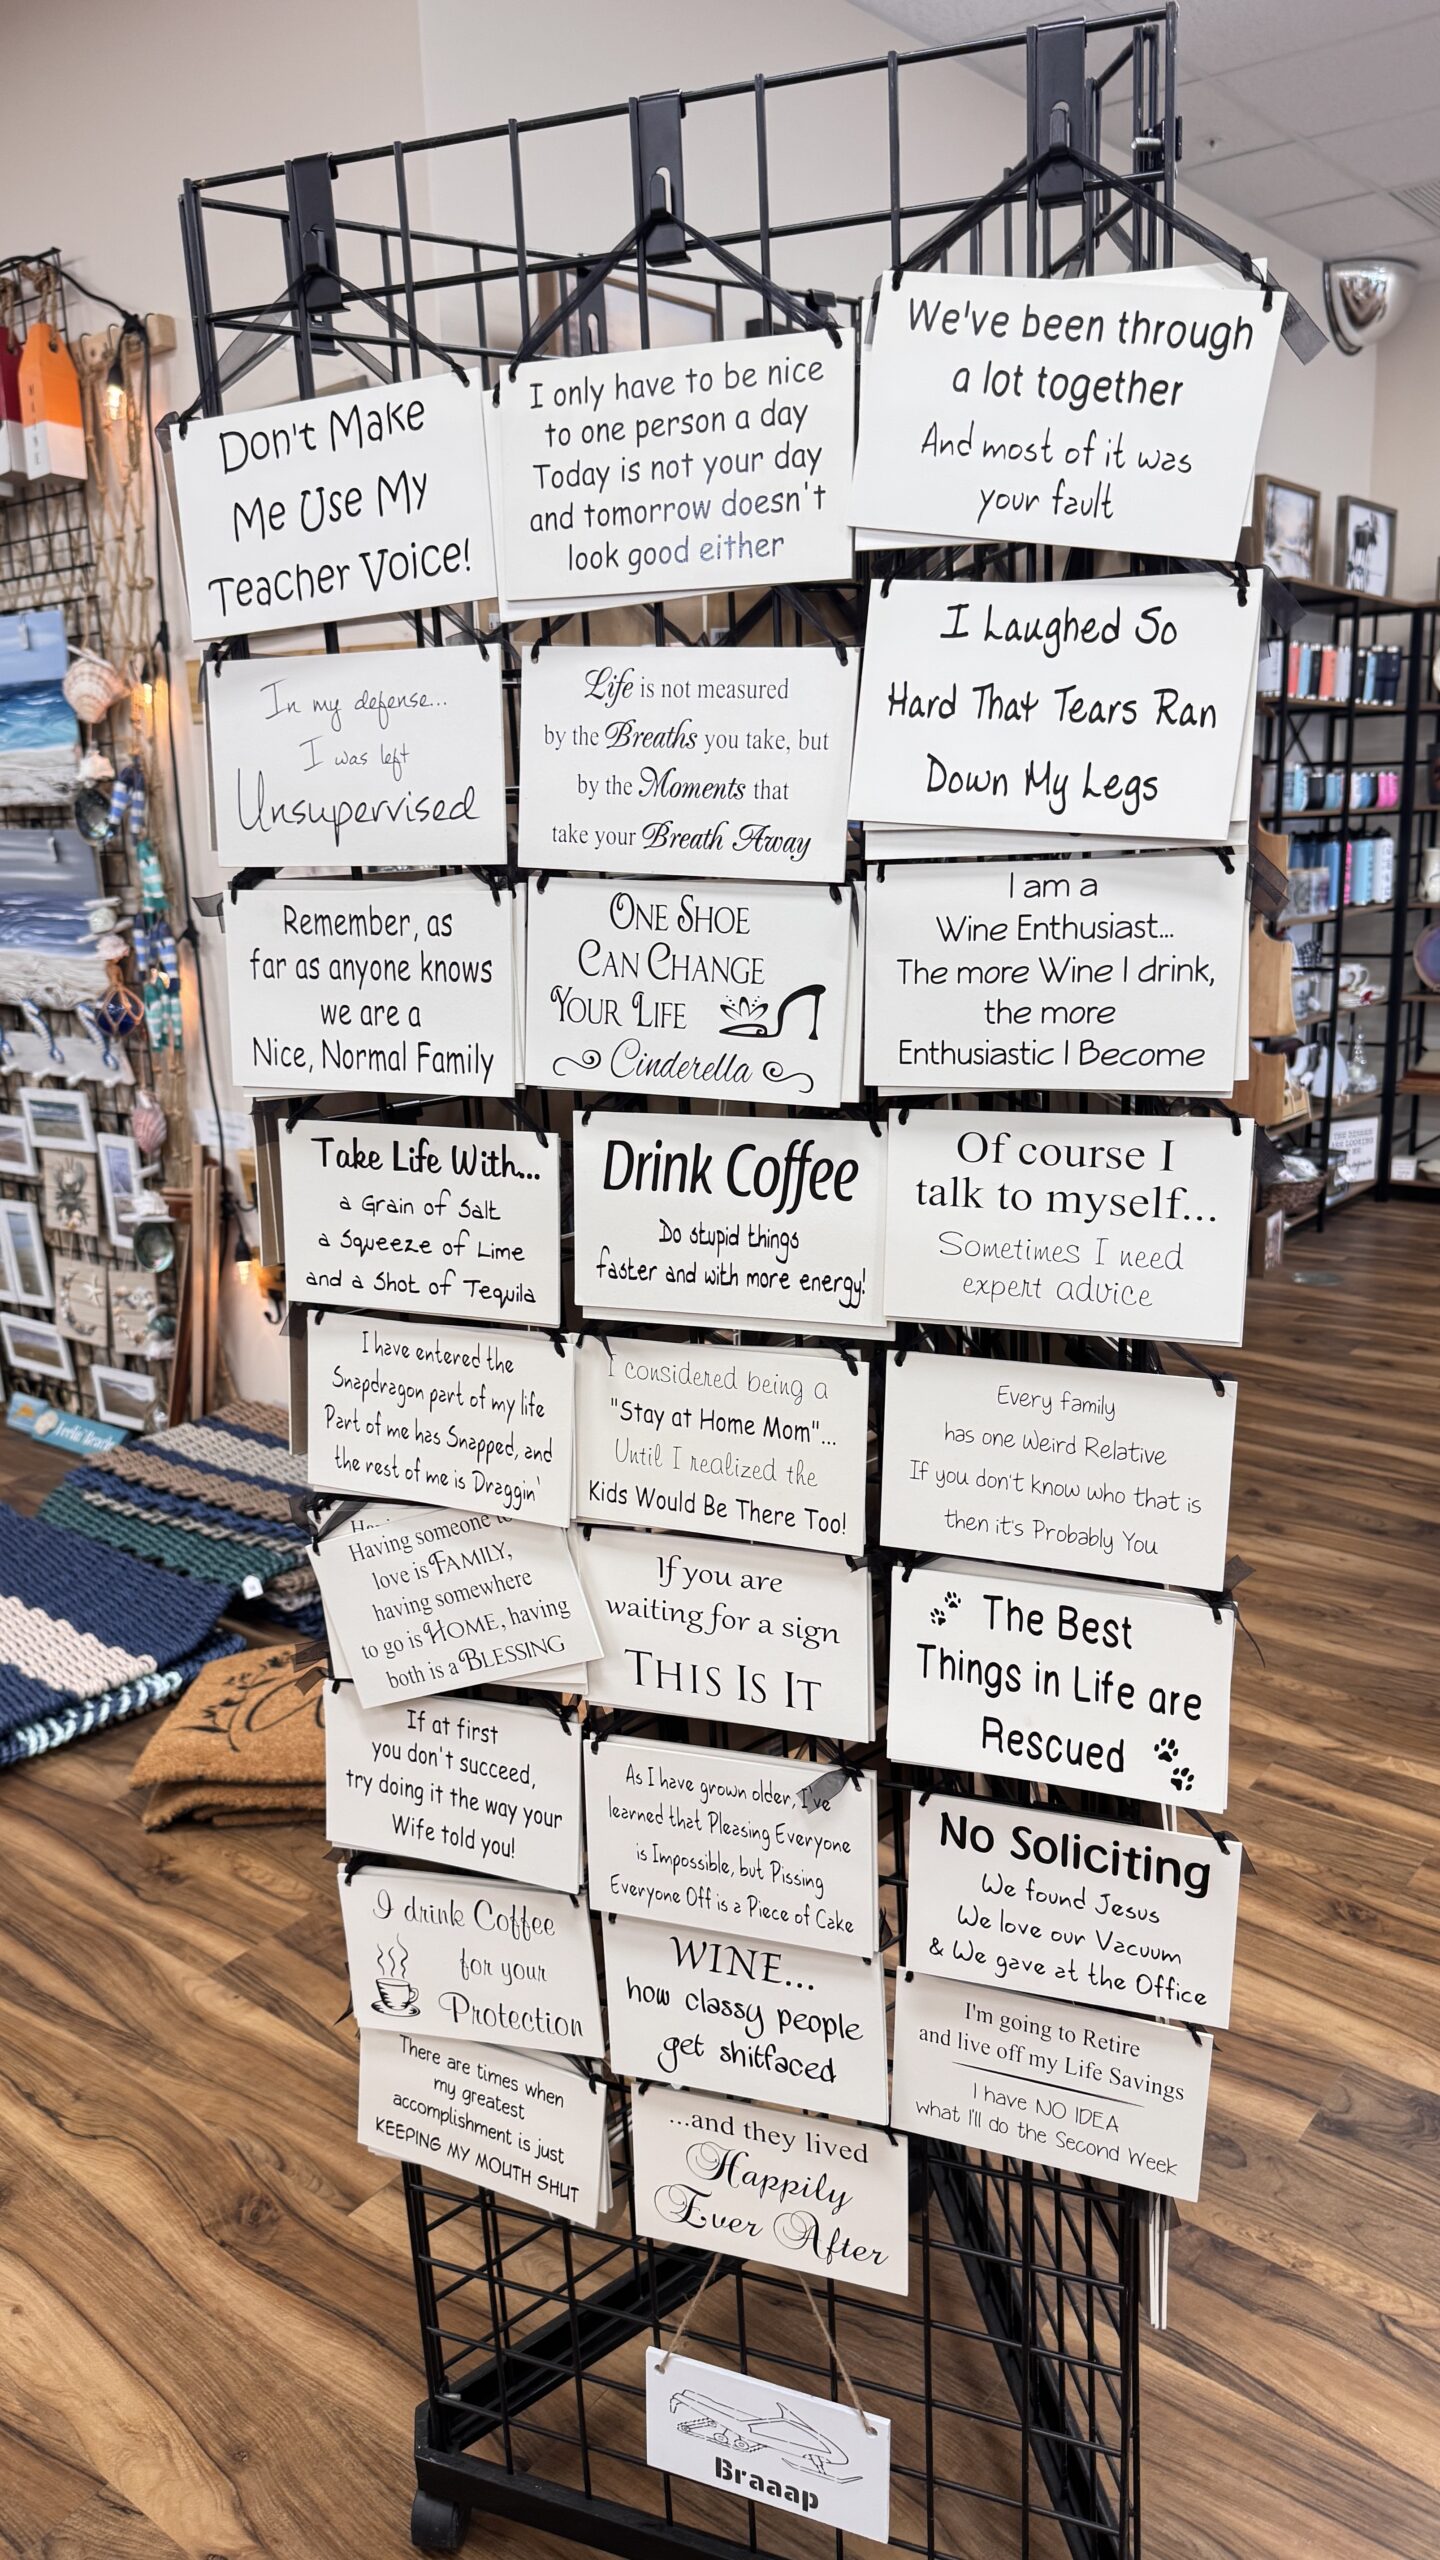 Don't Make
Me Use My
Teacher Voice!
I only have to be nice
to one person a day
Today is not your day
and tomorrow doesn't
look good either
We've been through
a lot together
And most of it was
your fault
In my defense...
I was left
Unsupervised
Life is not measured
by the Breaths you take, but
by the Moments that
take your Breath Away
I Laughed So
Hard That Tears Ran
Down My Legs
Remember, as
far as anyone knows
we are a
Nice, Normal Family
ONE SHOE
CAN CHANGE
YOUR LIFE
Cinderella
I am a
Wine Enthusiast...
The more Wine I drink,
the more
Enthusiastic I Become
Take Life With...
a Grain of Salt
a Squeeze of Lime
and a Shot of Tequila
Drink Coffee
Do stupid things
faster and with more energy!
Of course I
talk to myself...
Sometimes I need
expert advice
I have entered the
Snapdragon part of my life
Part of me has Snapped, and
the rest of me is Draggin'
I considered being a
"Stay at Home Mom"...
Until I realized the
Kids Would Be There Too!
Every family
has one Weird Relative
If you don't know who that is
then it's Probably You
Having someone
love is FAMILY,
having somewhere
to go is HOME, having
both is a BLESSING
If you are
waiting for a sign
THIS IS IT
The Best
Things in Life are
Rescued
If at first
you don't succeed,
try doing it the way your
Wife told you!
As I have grown older, I've
learned that Pleasing Everyone
is Impossible, but Pissing
Everyone Off is a Piece of Cake
No Soliciting
We found Jesus
We love our Vacuum
& We gave at the Office
I drink Coffee
for your
Protection
WINE...
how classy people
get shitfaced
I'm going to Retire
and live off my Life Savings
I have NO IDEA
what I'll do the Second Week
There are times when
my greatest
accomplishment is just
KEEPING MY MOUTH SHUT
...and they lived
Happily
Ever After
Braaap